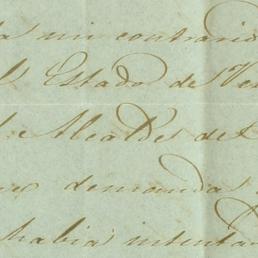 mi contrario
Estado de Ve
Alcaldes de
demandas
habia intenta